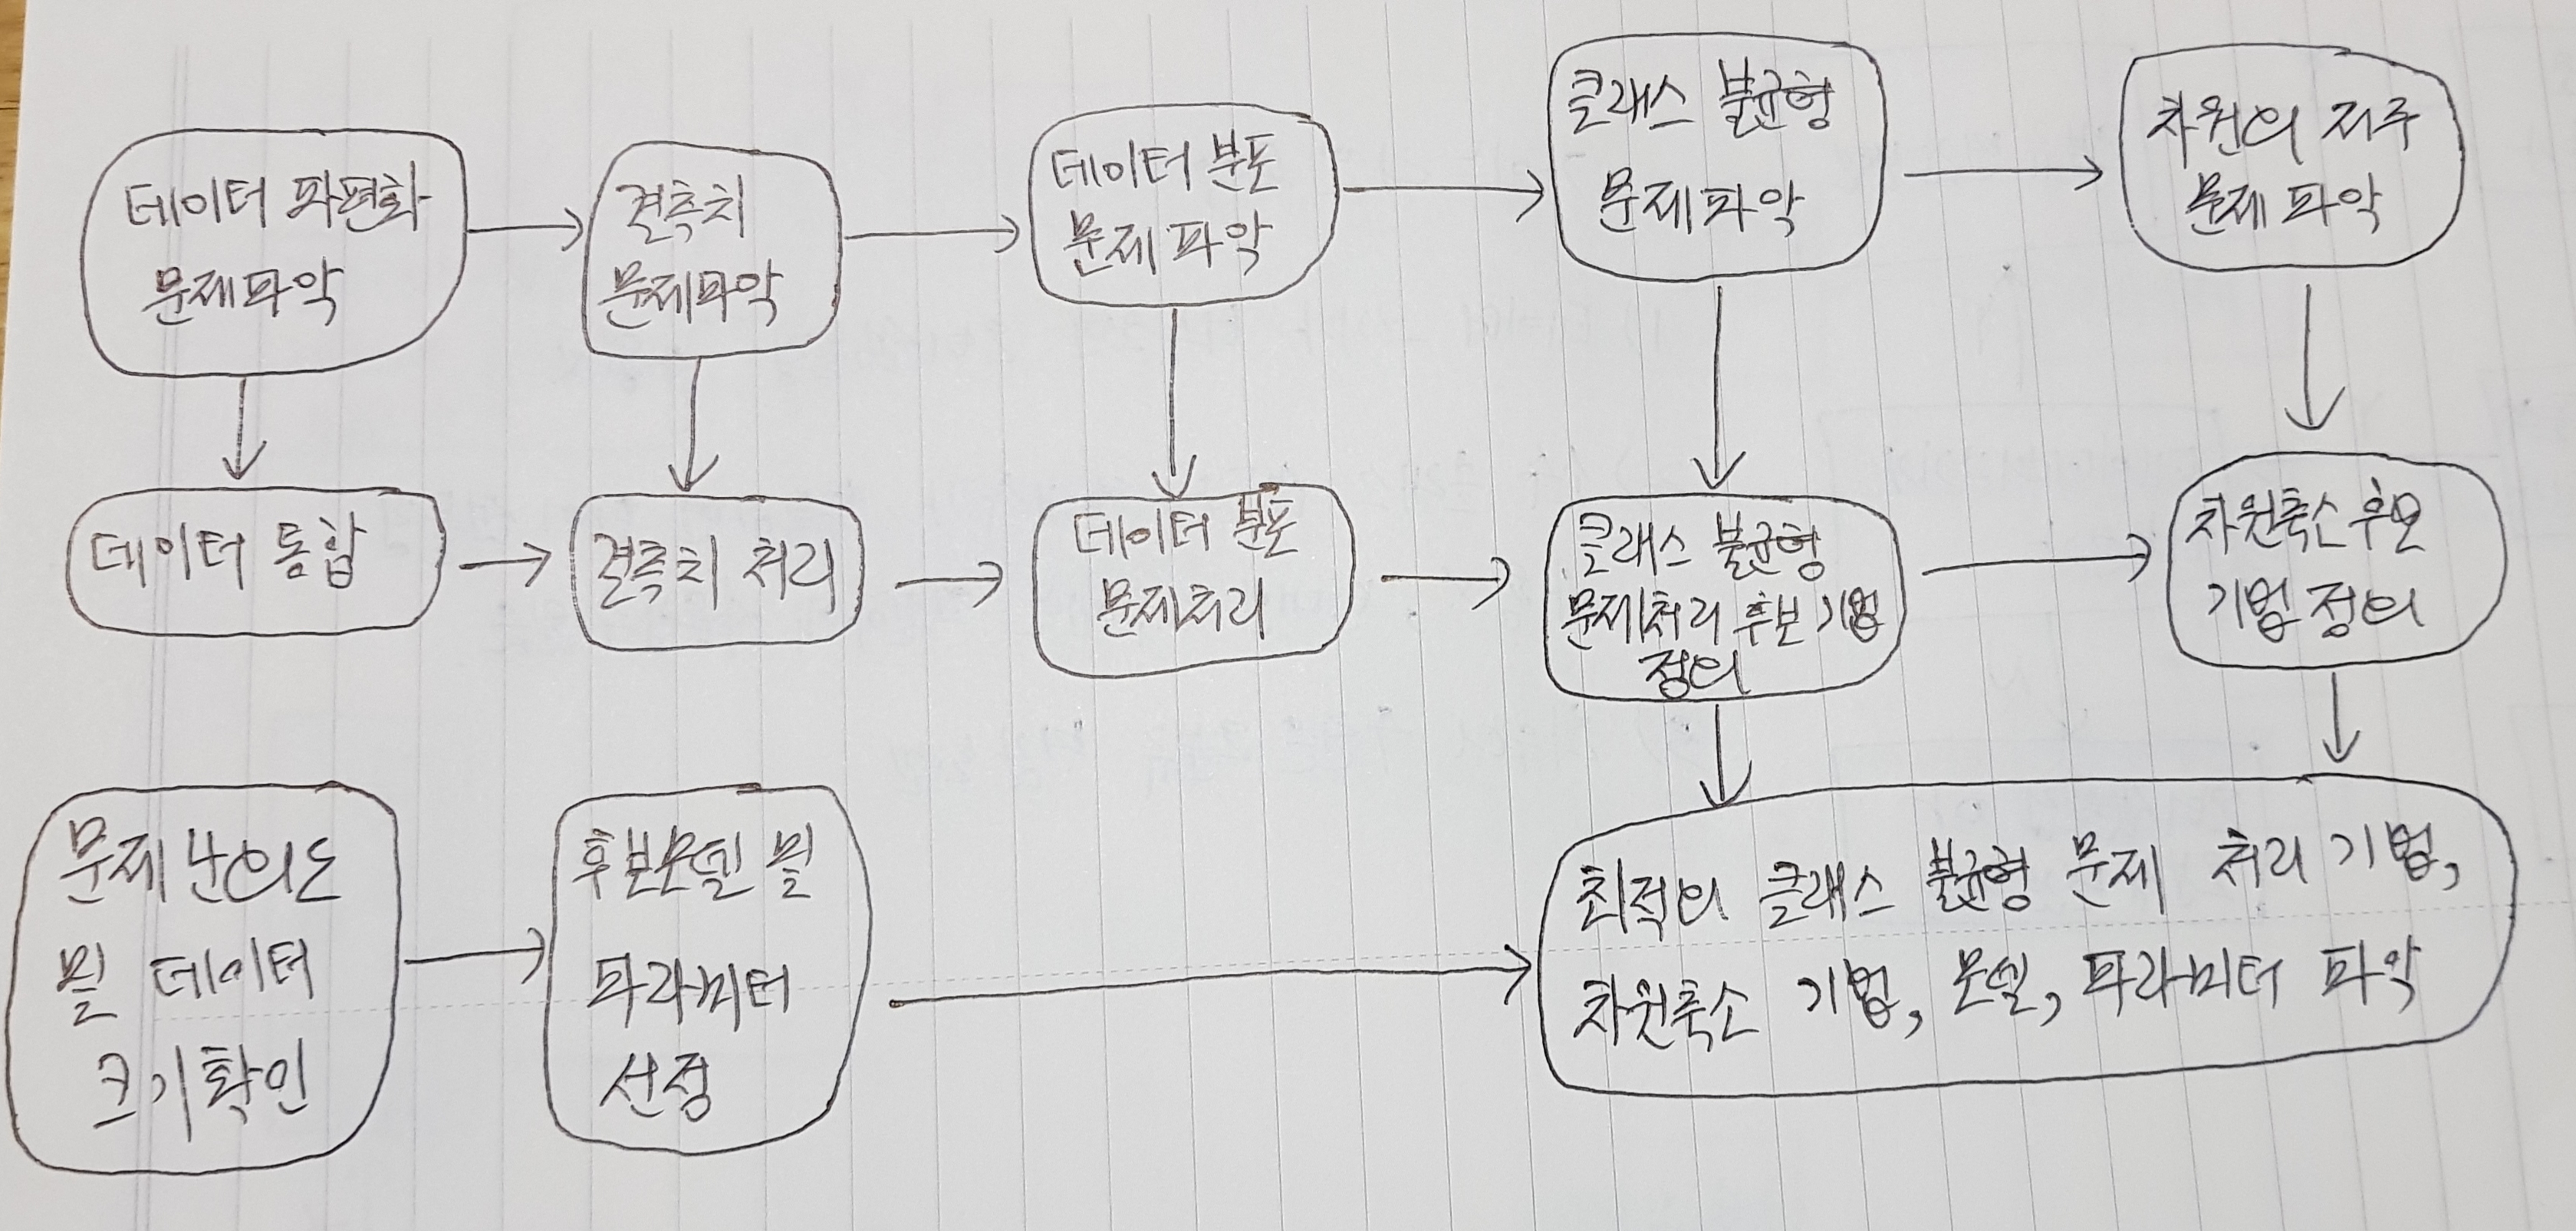 데이터 파편화
문제파악
결측치
문제파악
데이터 분포
문제 파악
클래스 불균형
문제파악
차원의 저주
문제 파악
데이터 통합
결측치 처리
데이터 분포
문제처리
클래스 불균형
문제처리 후보 기법
정의
차원축소 후보
기법 정의
문제 난이도
및 데이터
크기 확인
후보모델 및
파라미터
선정
최적의 클래스 불균형 문제 처리 기법,
차원축소 기법, 모델, 파라미터 파악